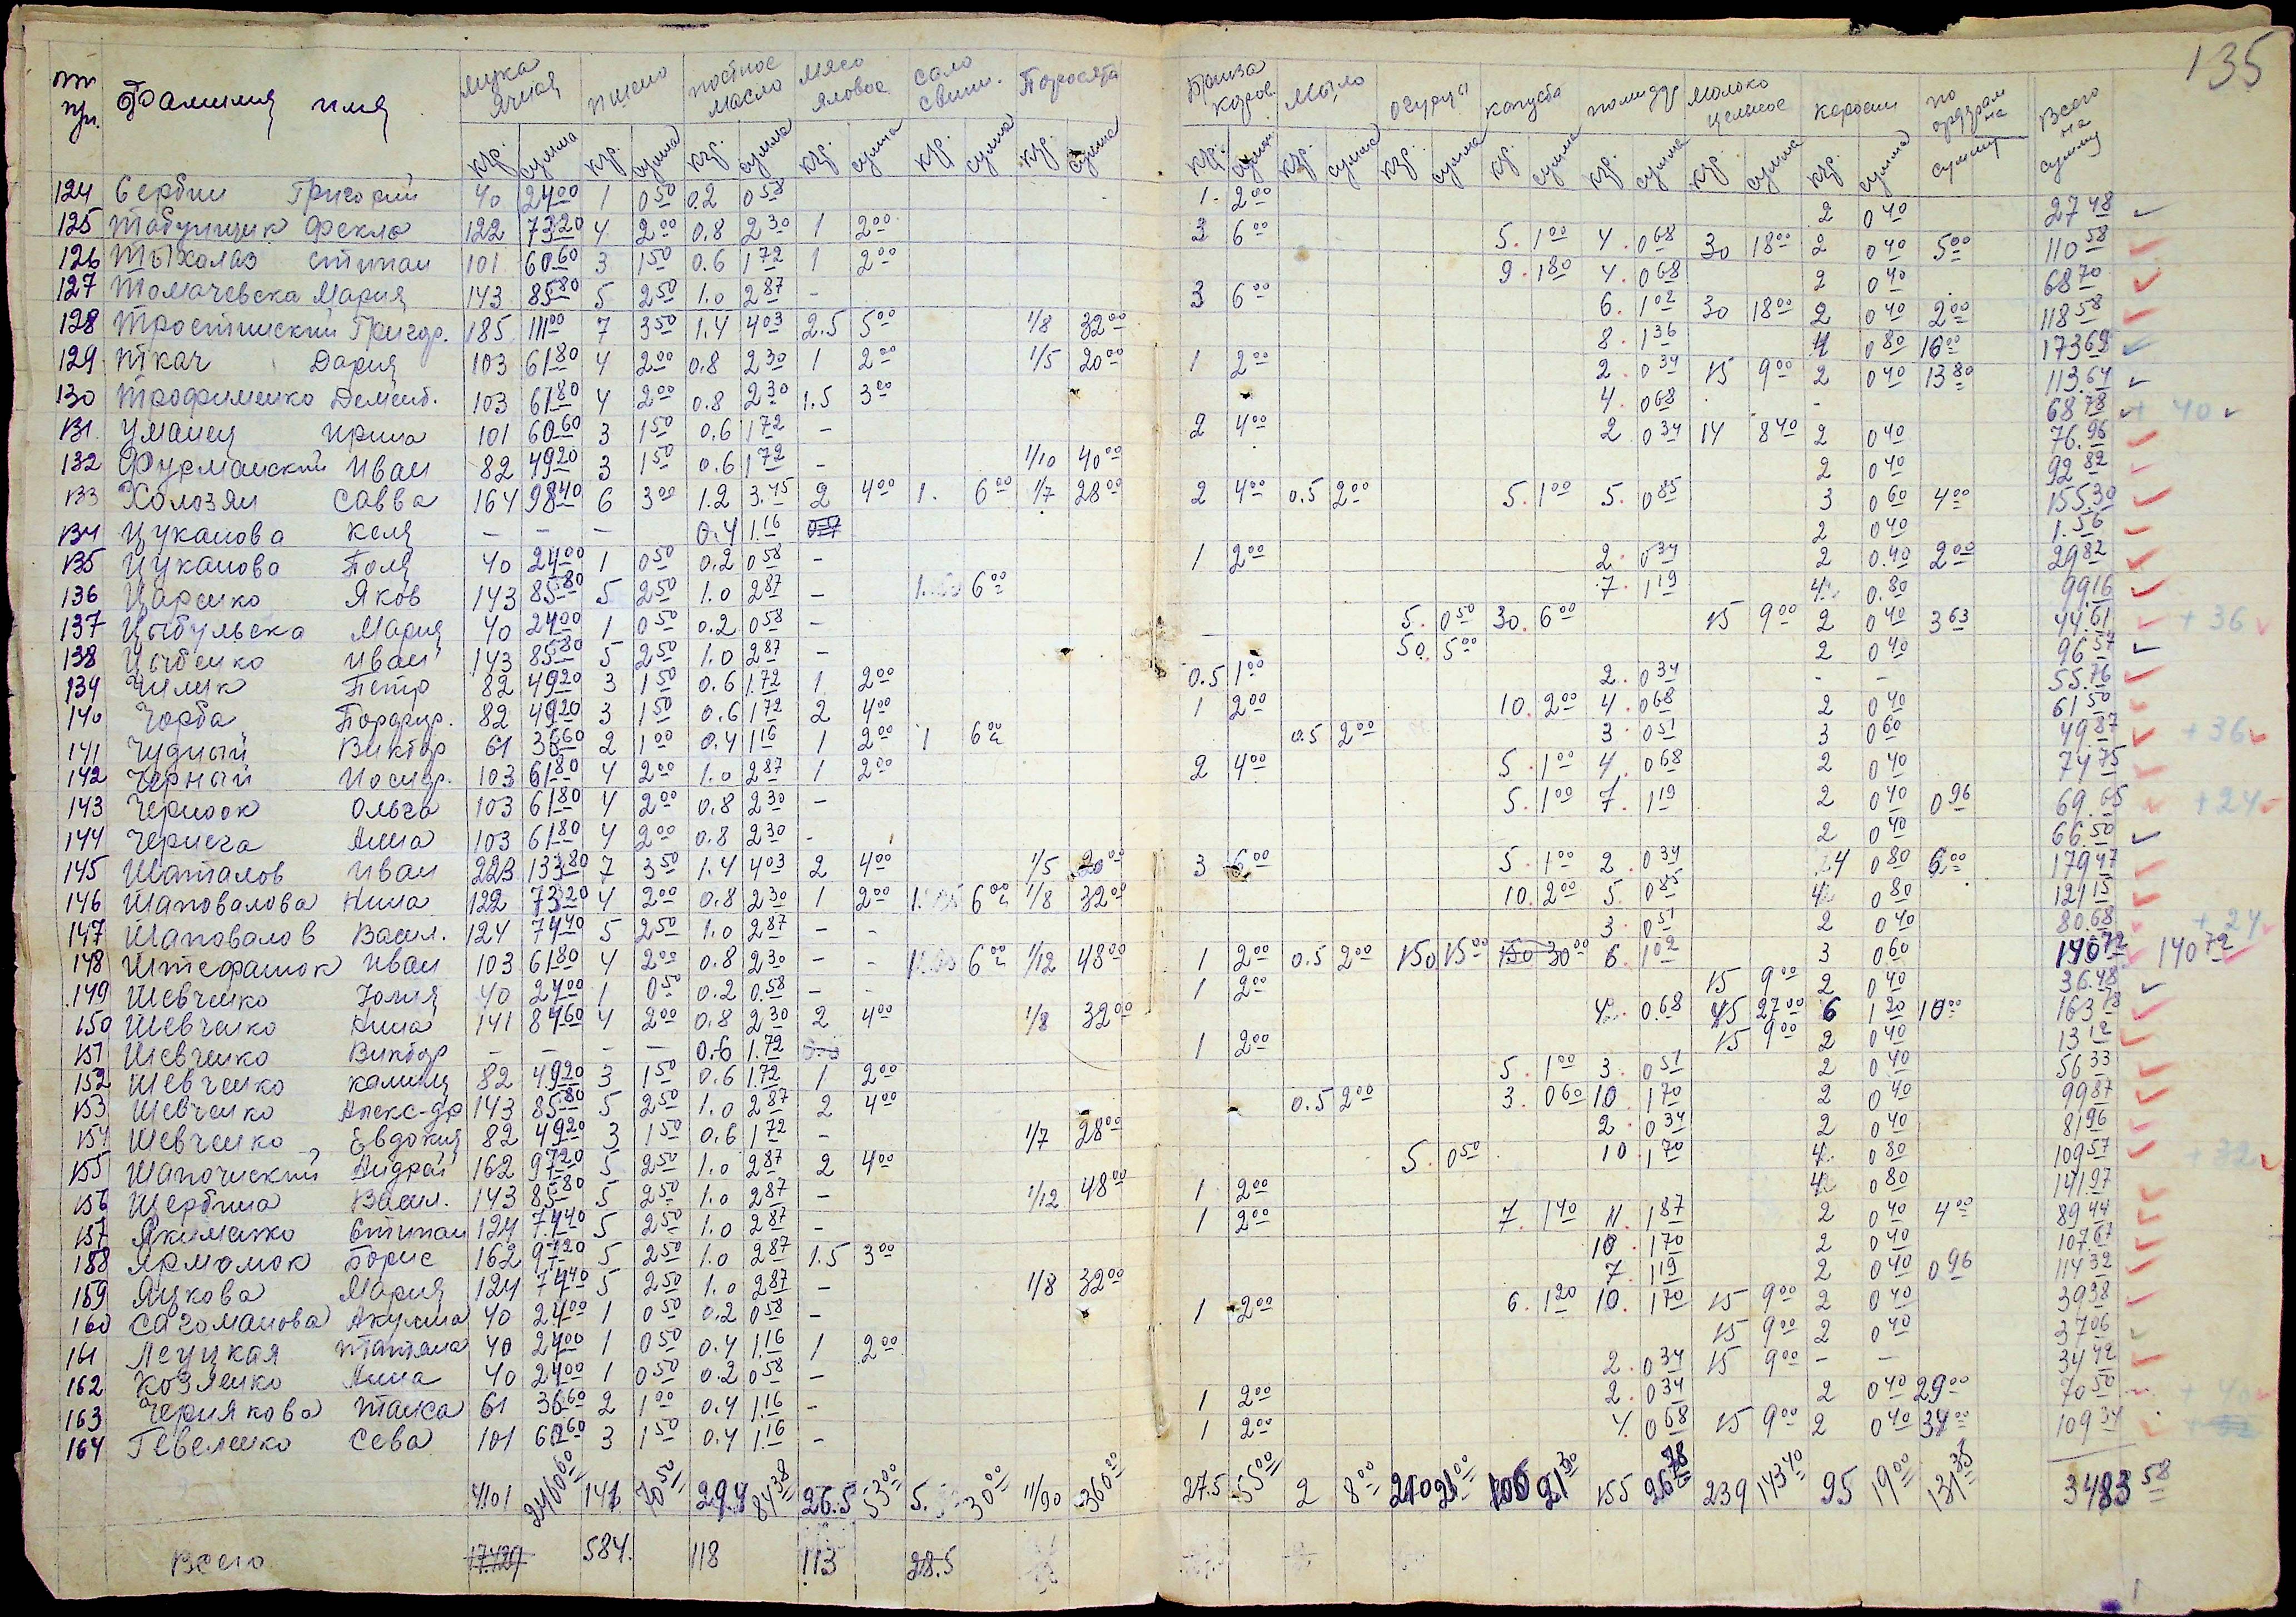 135
пп пр. Фамилия имя мука ячная пшено постное масло мясо яловое сало свин. Поросята Брынза коров. мыло огурцы капуста помидор молоко цельное керосин по ордерам на сумму Всего на сумму
кгр. сумма кгр. сумма кгр. сумма кгр. сумма кгр. сумма кгр. сумма кгр. сумма кгр. сумма кгр. сумма кгр. сумма кгр. сумма кгр. сумма кгр. сумма
124 Сербин Григорий 40 24 00 1 0 50 0.2 0 58 1. 2 00 2 0 40 27 48
125 Табунщик Фекла 122 73 20 4 2 00 0.8 2 30 1 2 00 3 6 00 5. 1 00 4. 0 68 30 18 00 2 0 40 5 00 110 58
126 Тыхолаз Стипан 101 60 60 3 1 50 0.6 1 72 1 2 00 9. 1 80 4. 0 68 2 0 40 68 70
127 Томачевска Мария 143 85 80 5 2 50 1.0 2 87 - 3 6 00 6. 1 02 30 18 00 2 0 40 2 00 118 58
128 Тростинский Григор. 185 111 00 7 3 50 1.4 4 03 2.5 5 00 1/8 32 00 8. 1 36 4 0 80 16 00 173 69
129 Ткач Дария 103 61 80 4 2 00 0.8 2 30 1 2 00 1/5 20 00 1 2 00 2. 0 34 15 9 00 2 0 40 13 80 113.64
130 Трофименко Демент. 103 61 80 4 2 00 0.8 2 30 1.5 3 00 4. 0 68 - 68 78 + 40
131. Уманец Ирина 101 60 60 3 1 50 0.6 1 72 - 2 4 00 2 0 34 14 8 40 2 0 40 76.96
132 Фурманский Иван 82 49 20 3 1 50 0.6 1 72 - 1/10 40 00 2 0 40 92 82
133 Холозян Савва 164 98 40 6 3 00 1.2 3.45 2 4 00 1. 6 00 1/7 28 00 2 4 00 0.5 2 00 5. 1 00 5. 0 85 3 0 60 4 00 155.30
134 Цуканова Келя - - - 0.4 1.16 2 0 40 1.56
135 Цуканова Поля 40 24 00 1 0 50 0.2 0 58 - 1 2 00 2. 0 34 2 0.40 2 00 29 82
136 Царенко Яков 143 85 80 5 2 50 1.0 2 87 - 1. 6 00 7. 1 19 4. 0.80 99 16
137 Цыбульска Мария 40 24 00 1 0 50 0.2 0 58 - - 5. 0 50 30. 6 00 15 9 00 2 0 40 3 63 44.61 + 36
138 Цыбенко Иван 143 85 80 5 2 50 1.0 2 87 - 50. 5 00 2 0 40 96 57
139 Чилик Петр 82 49 20 3 1 50 0.6 1.72 1 2 00 0.5 1 00 2. 0 34 - - 55.76
140 Чорба Порфир. 82 49 20 3 1 50 0.6 1 72 2 4 00 1 2 00 10. 2 00 4. 0 68 2 0 40 61 50
141 Чудный Виктор 61 36 60 2 1 00 0.4 1 16 1 2 00 1 6 00 0.5 2 00 3. 0 51 3 0 60 49.87 + 36
142 Черный Иосиф. 103 61 80 4 2 00 1.0 2 87 1 2 00 2 4 00 5. 1 00 4. 0 68 2 0 40 74 75
143 Черноок Ольга 103 61 80 4 2 00 0.8 2 30 - 5. 1 00 7. 1 19 2 0 40 0 96 69.65 + 24
144 Чернега Анна 103 61 80 4 2 00 0.8 2 30 - 2 0 40 66.50
145 Шаталов Иван 223 133 80 7 3 50 1.4 4 03 2 4 00 1/5 20 00 3 6 00 5. 1 00 2. 0 34 4 0 80 6 00 179 47
146 Шаповалова Нина 122 73 20 4 2 00 0.8 2 30 1 2 00 1. 6 00 1/8 32 00 10. 2 00 5. 0 85 4 0 80 121 15
147 Шаповалов Васил. 124 74 40 5 2 50 1.0 2 87 - - 3. 0 51 2 0 40 80.68 + 24
148 Штефанюк Иван 103 61 80 4 2 00 0.8 2 30 - - 1. 6 00 1/12 48 00 1 2 00 0.5 2 00 150 15 00 150 30 00 6. 1 02 3 0 60 140 72 140 72
149 Шевченко Юлия 40 24 00 1 0 50 0.2 0.58 - - 1 2 00 15 9 00 2 0 40 36.48
150 Шевченко Анна 141 84 60 4 2 00 0.8 2 30 2 4 00 1/8 32 00 4. 0.68 45 27 00 6 1 20 10 00 163 78
151 Шевченко Виктор - - - - 0.6 1.72 1 2 00 15 9 00 2 0 40 13 12
152 Шевченко Калина 82 49 20 3 1 50 0.6 1.72 1 2 00 5. 1 00 3. 0 51 2 0 40 56 33
153 Шевченко Алекс-др 143 85 80 5 2 50 1.0 2 87 2 4 00 0.5 2 00 3. 0 60 10. 1 70 2 0 40 99 87
154 Шевченко Евдокия 82 49 20 3 1 50 0.6 1 72 - 1/7 28 00 2. 0 34 2 0 40 81 96
155 Шапочнский Андрей 162 97 20 5 2 50 1.0 2 87 2 4 00 5. 0 50 10 1 70 4. 0 80 109 57 + 32
156 Щербина Васил. 143 85 80 5 2 50 1.0 2 87 - 1/12 48 00 1 2 00 4 0 80 141 97
157 Якименко Стипан 124 74 40 5 2 50 1.0 2 87 - 1 2 00 7. 1 40 11. 1 87 2 0 40 4 00 89 44
158 Ярмолюк Борис 162 97 20 5 2 50 1.0 2 87 1.5 3 00 10. 1 70 2 0 40 107.67
159 Яцкова Мария 124 74 40 5 2 50 1.0 2 87 - 1/8 32 00 7. 1 19 2 0 40 0 96 114 32
160 Сагоманова Акулина 40 24 00 1 0 50 0.2 0 58 - 1 2 00 6. 1 20 10. 1 70 15 9 00 2 0 40 39 38
161 Леуцкая Татьяна 40 24 00 1 0 50 0.4 1.16 1 2 00 15 9 00 2 0 40 37 06
162 Козленко Анна 40 24 00 1 0 50 0.2 0 58 - 2. 0 34 15 9 00 - - 34 42
163 Чернякова Таиса 61 36 60 2 1 00 0.4 1.16 - 1 2 00 2. 0 34 2 0 40 29 00 70 50 + 40
164 Гевеленко Сева 101 60 60 3 1 50 0.4 1.16 - 1 2 00 4. 0 68 15 9 00 2 0 40 34 00 109 34
4101 2460 60 141 70 50 29.4 84 38 26.5 53 00 5. 30 00 11/90 360 00 27.5 55 00 2 8 00 210 21 00 106 21 30 155 26 78 239 143 40 95 19 00 131 35 3483 58
Всего 17429 584. 118 113 28.5